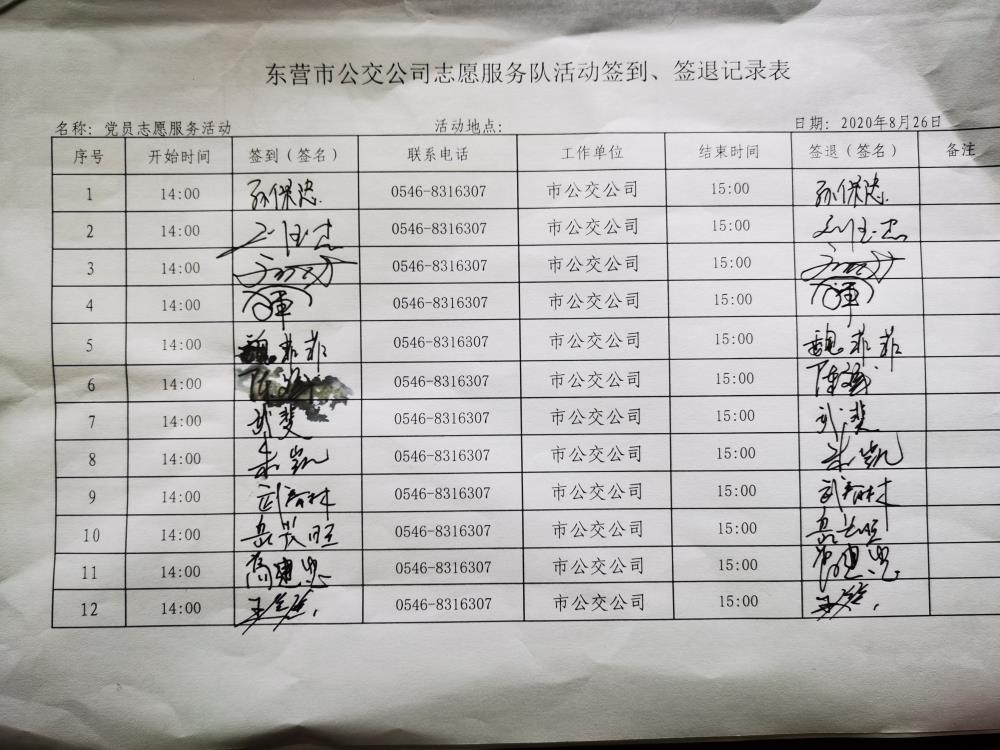 东营市公交公司志愿服务队活动签到、签退记录表
名称: 党员志愿服务活动 活动地点: 日期: 2020年8月26日
序号 开始时间 签到（签名） 联系电话 工作单位 结束时间 签退（签名） 备注
1 14:00 孙保忠 0546-8316307 市公交公司 15:00 孙保忠
2 14:00 0546-8316307 市公交公司 15:00
3 14:00 0546-8316307 市公交公司 15:00
4 14:00 0546-8316307 市公交公司 15:00
5 14:00 魏菲菲 0546-8316307 市公交公司 15:00 魏菲菲
6 14:00 0546-8316307 市公交公司 15:00 陈强
7 14:00 武斐 0546-8316307 市公交公司 15:00 武斐
8 14:00 朱凯 0546-8316307 市公交公司 15:00 朱凯
9 14:00 武春林 0546-8316307 市公交公司 15:00 武春林
10 14:00 岳长旺 0546-8316307 市公交公司 15:00 岳长旺
11 14:00 0546-8316307 市公交公司 15:00
12 14:00 0546-8316307 市公交公司 15:00